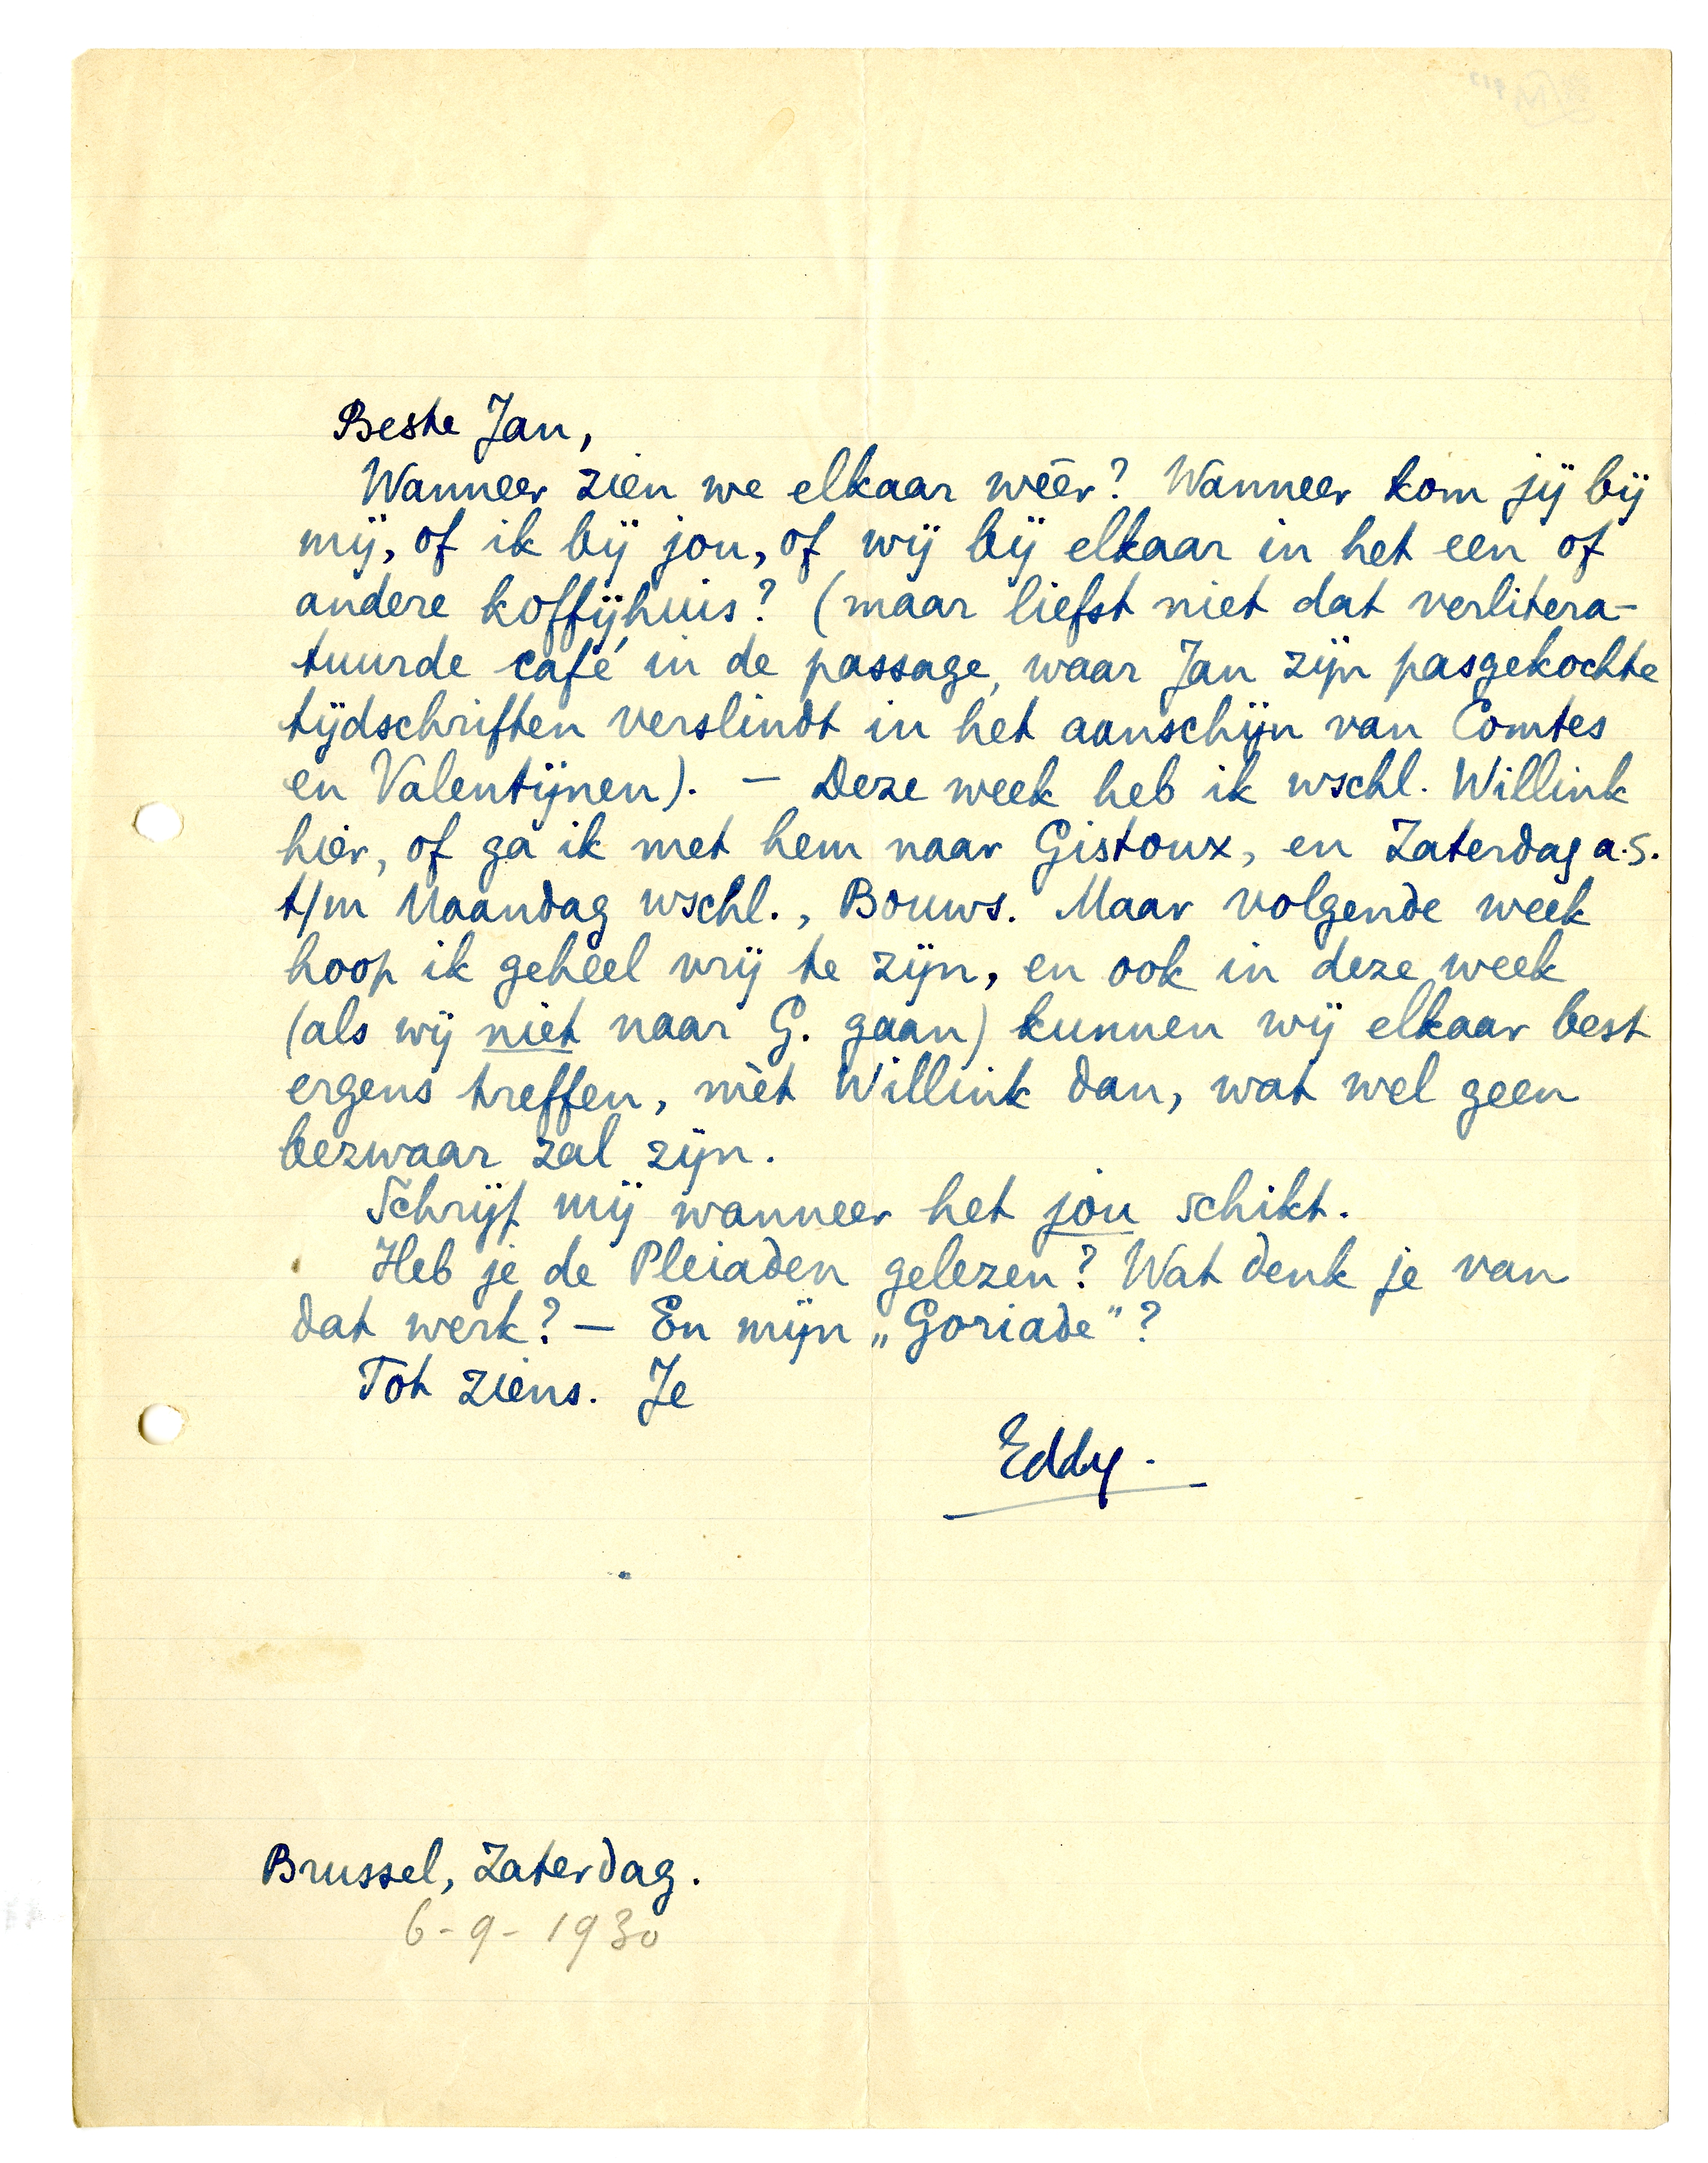 Beste Jan,
Wanneer zien we elkaar wéér? Wanneer kom jij bij
mij, of ik bij jou, of wij bij elkaar in het een of
andere koffijhuis? (maar liefst niet dat verlitera-
tuurde café in de passage, waar Jan zijn pasgekochte
tijdschriften verslindt in het aanschijn van Comtes
en Valentijnen). — Deze week heb ik wschl. Willink
hier, of ga ik met hem naar Gistoux, en Zaterdag a.s.
t/m Maandag wschl., Bouws. Maar volgende week
hoop ik geheel vrij te zijn, en ook in deze week
(als wij niet naar G. gaan) kunnen wij elkaar best
ergens treffen, mèt Willink dan, wat wel geen
bezwaar zal zijn.
Schrijf mij wanneer het jou schikt.
Heb je de Pleiaden gelezen? Wat denk je van
dat werk? — En mijn „Goriade"?
Tot ziens. Je
Eddy.
Brussel, Zaterdag.
6-9-1930